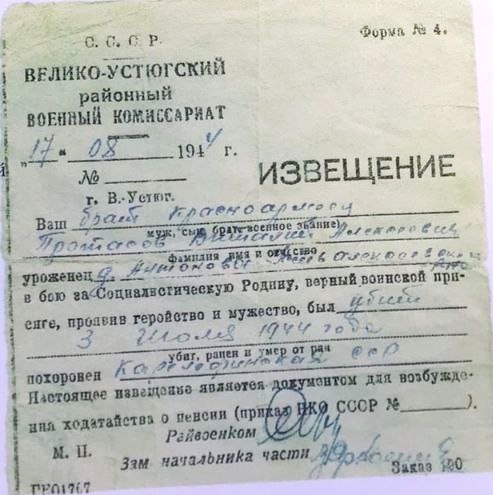 С. С. С. Р.
Форма № 4.
ВЕЛИКО-УСТЮГСКИЙ
районный
ВОЕННЫЙ КОМИССАРИАТ
„17“ 08 1944 г.
№
г. В.-Устюг.
ИЗВЕЩЕНИЕ
Ваш брат красноармеец
муж, сын, брат, военное звание)
Протасов Виталий Алексеевич
фамилия имя и отчество
уроженец д.
в бою за Социалистическую Родину, верный воинской при-
сяге, проявив геройство и мужество, был убит
3 июля 1944 года
убит, ранен и умер от ран
похоронен ССР
Настоящее извещение является документом для возбужде-
ния ходатайства о пенсии (приказ НКО СССР № ).
Райвоенком
М. П.
Зам начальника части
Заказ